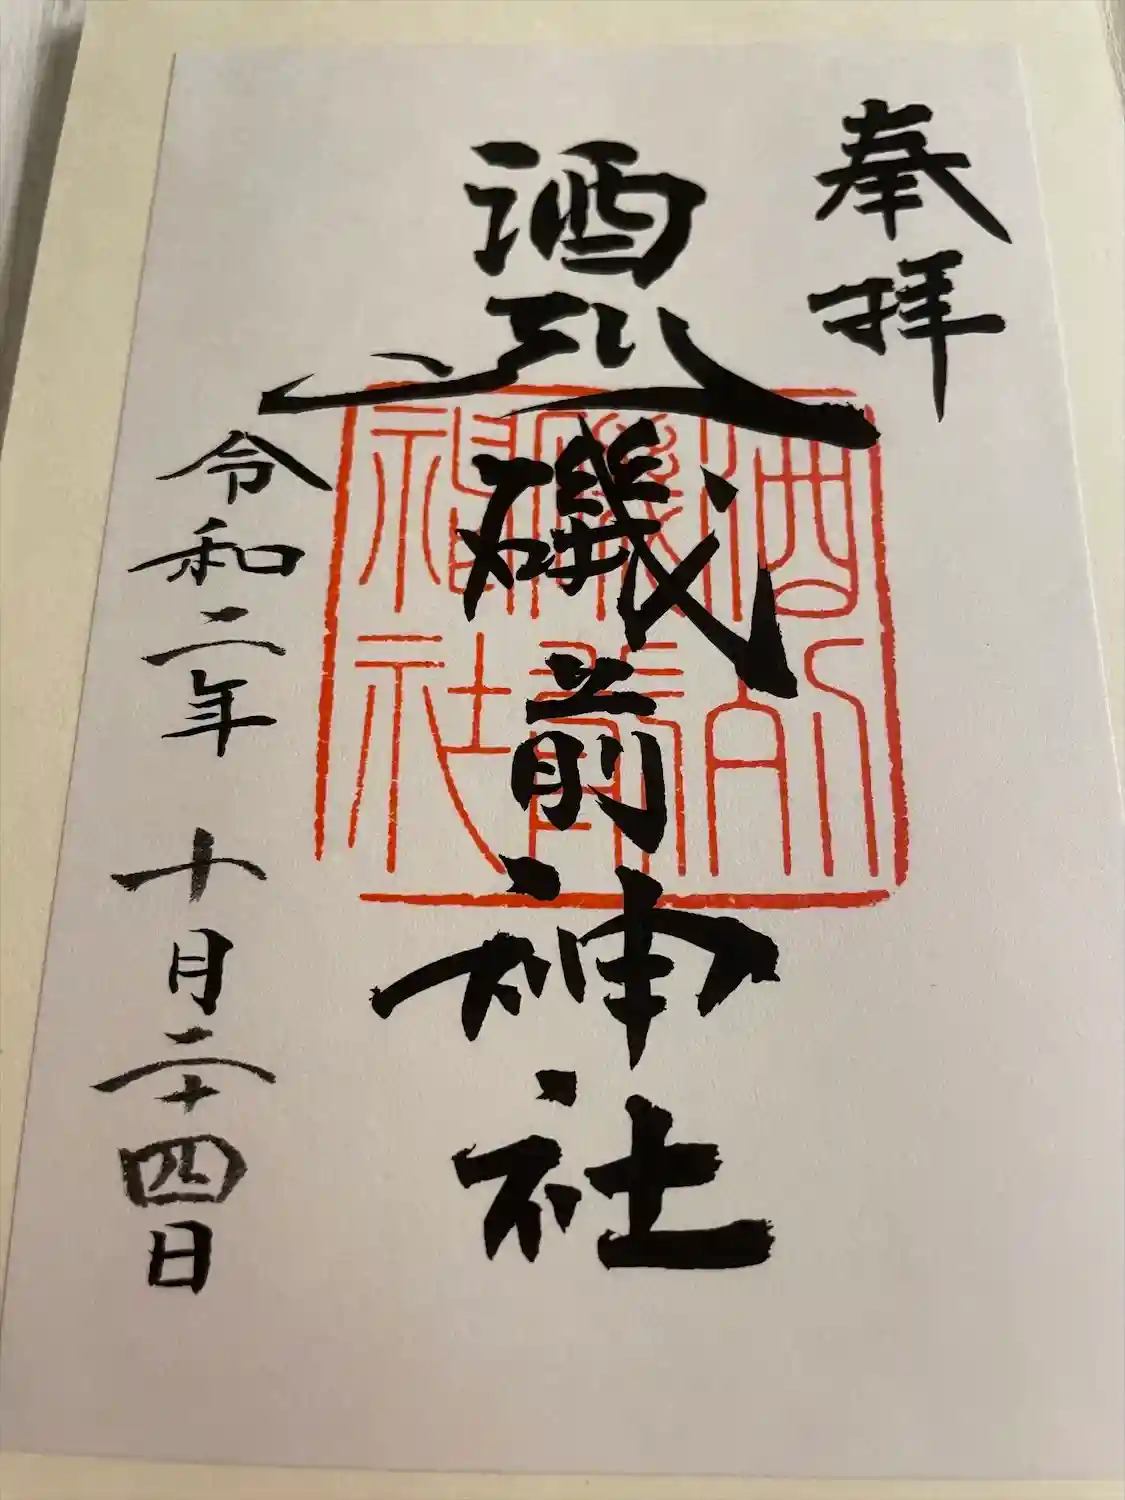 奉拝
酒列磯前神社
令和二年 十月二十四日
酒列
磯前
神社